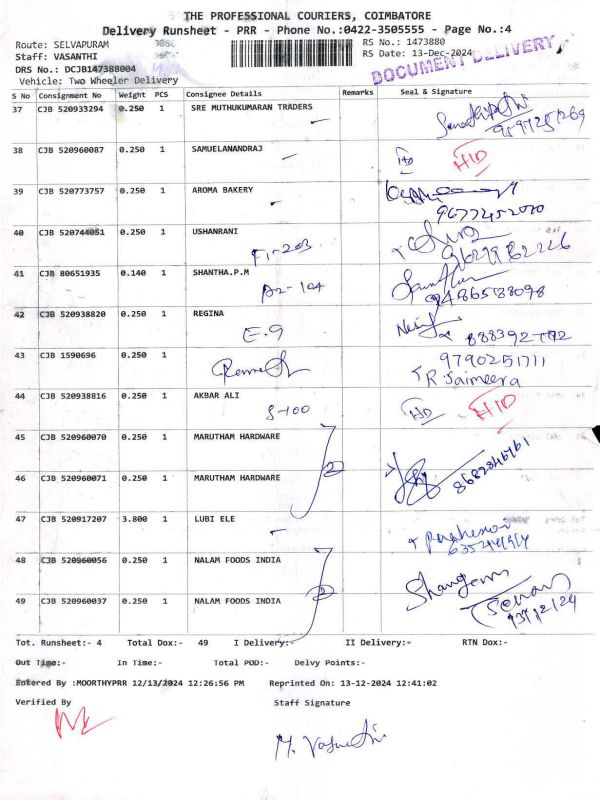 THE PROFESSIONAL COURIERS, COIMBATORE
Delivery Runsheet - PRR - Phone No.:0422-3505555 - Page No.:4
Route: SELVAPURAM
RS No.: 1473880
Staff: VASANTHI
RS Date: 13-Dec-2024
DRS No.: DCJB147388004
DOCUMENT DELIVERY
Vehicle: Two Wheeler Delivery
S No Consignment No Weight PCS Consignee Details Remarks Seal & Signature
37 CJB 520933294 0.250 1 SRE MUTHUKUMARAN TRADERS
38 CJB 520960087 0.250 1 SAMUELANANDRAJ
HD HID
39 CJB 520773757 0.250 1 AROMA BAKERY
9677452000
40 CJB 520744051 0.250 1 USHANRANI
F1-203
41 CJB 80651935 0.140 1 SHANTHA.P.M
A2-104
9486588098
42 CJB 520938820 0.250 1 REGINA
E-9
43 CJB 1590696 0.250 1
9790251711
R. Jaimeera
44 CJB 520938816 0.250 1 AKBAR ALI
S-100
HD HID
45 CJB 520960070 0.250 1 MARUTHAM HARDWARE
2
46 CJB 520960071 0.250 1 MARUTHAM HARDWARE
8682846761
47 CJB 520917207 3.800 1 LUBI ELE
48 CJB 520960056 0.250 1 NALAM FOODS INDIA
2
49 CJB 520960037 0.250 1 NALAM FOODS INDIA
13/12/24
Tot. Runsheet:- 4 Total Dox:- 49 I Delivery:- II Delivery:- RTN Dox:-
Out Time:- In Time:- Total POD:- Delvy Points:-
Entered By :MOORTHYPRR 12/13/2024 12:26:56 PM Reprinted On: 13-12-2024 12:41:02
Verified By Staff Signature